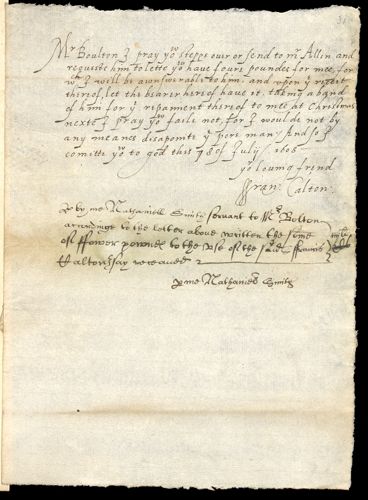 Mr Boulton I pray yow steppe over or send to mr Allin and
requeste him to lette yow have foure poundes for mee, for
wch I will be awnswerable to him. and upon ye receite
thereof, let the bearer hereof have it. taking a band
of him for ye repaiment thereof to mee at Christmas
nexte I pray yow faile not, for I would not by
any meanes disapointe ye pore man. And so I
comitte yow to god this 18 of July 1608
yor loving frend
Fran: Calton.
by me Nathaniell Smith servant to Mr Bolton
accordinge to the letter above written the some
of ffower pounds to the use of the sd ffrancis
Calton I say receaved
p me Nathaniell Smith